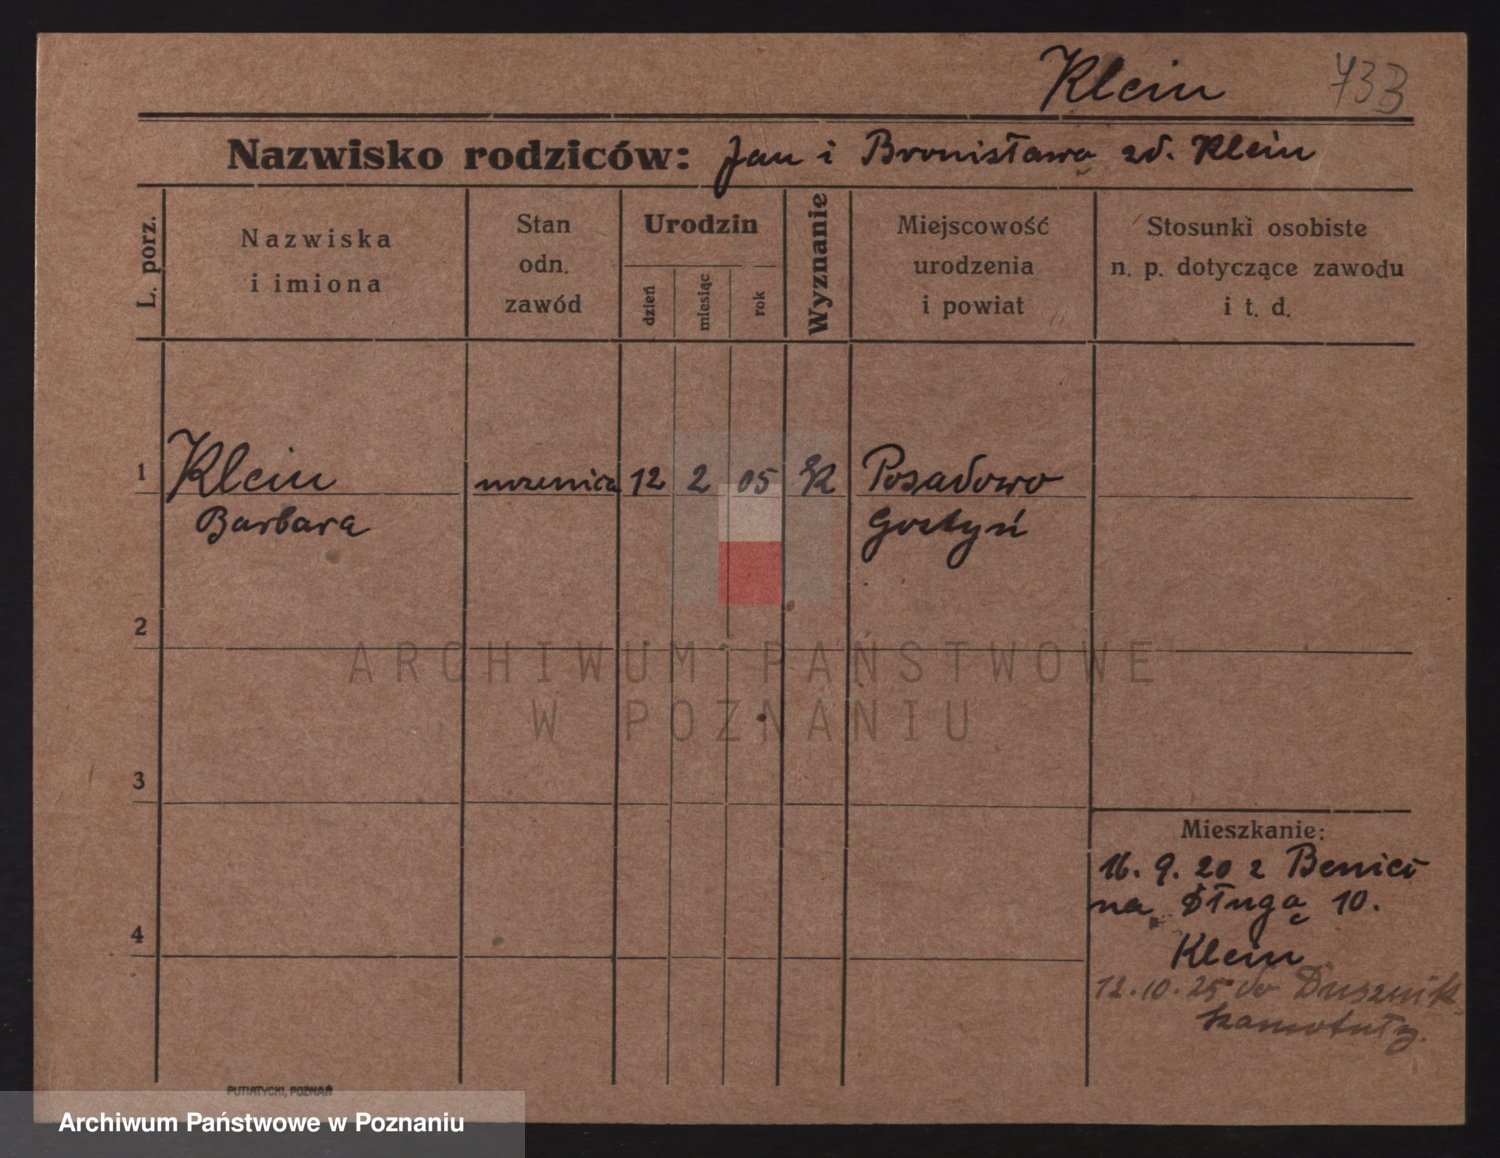 Klein 733
Nazwisko rodziców: Jan i Bronisława zd. Klein
L. porz.
Nazwiska
i imiona
Stan
odn.
zawód
Urodzin
dzień
miesiąc
rok
Wyznanie
Miejscowość
urodzenia
i powiat
Stosunki osobiste
n. p. dotyczące zawodu
i t. d.
1 Klein 12 2 05 Posadowo
Barbara Gostyń
2
ARCHIWUM PAŃSTWOWE
W POZNANIU
3
Mieszkanie:
16. 9. 20 z Benice
na Długą 10.
4
Klein
12.10.25 do Dusznik
Szamotuły.
PUTIATYCKI, POZNAŃ
Archiwum Państwowe w Poznaniu